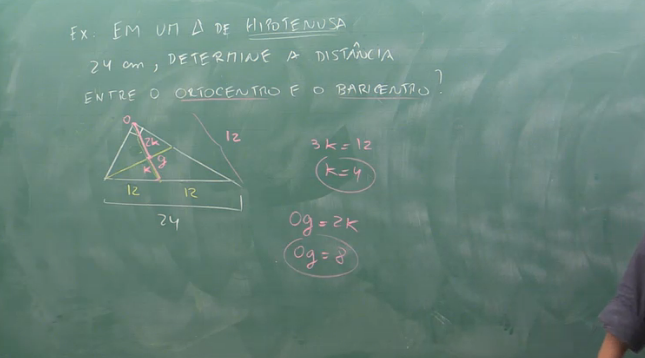 EX. EM UM Δ DE HIPOTENUSA
24 cm, DETERMINE A DISTÂNCIA
ENTRE O ORTOCENTRO E O BARICENTRO?
O
2K
g
K
12
12
12
24
3K=12
K=4
Og=2K
Og=8